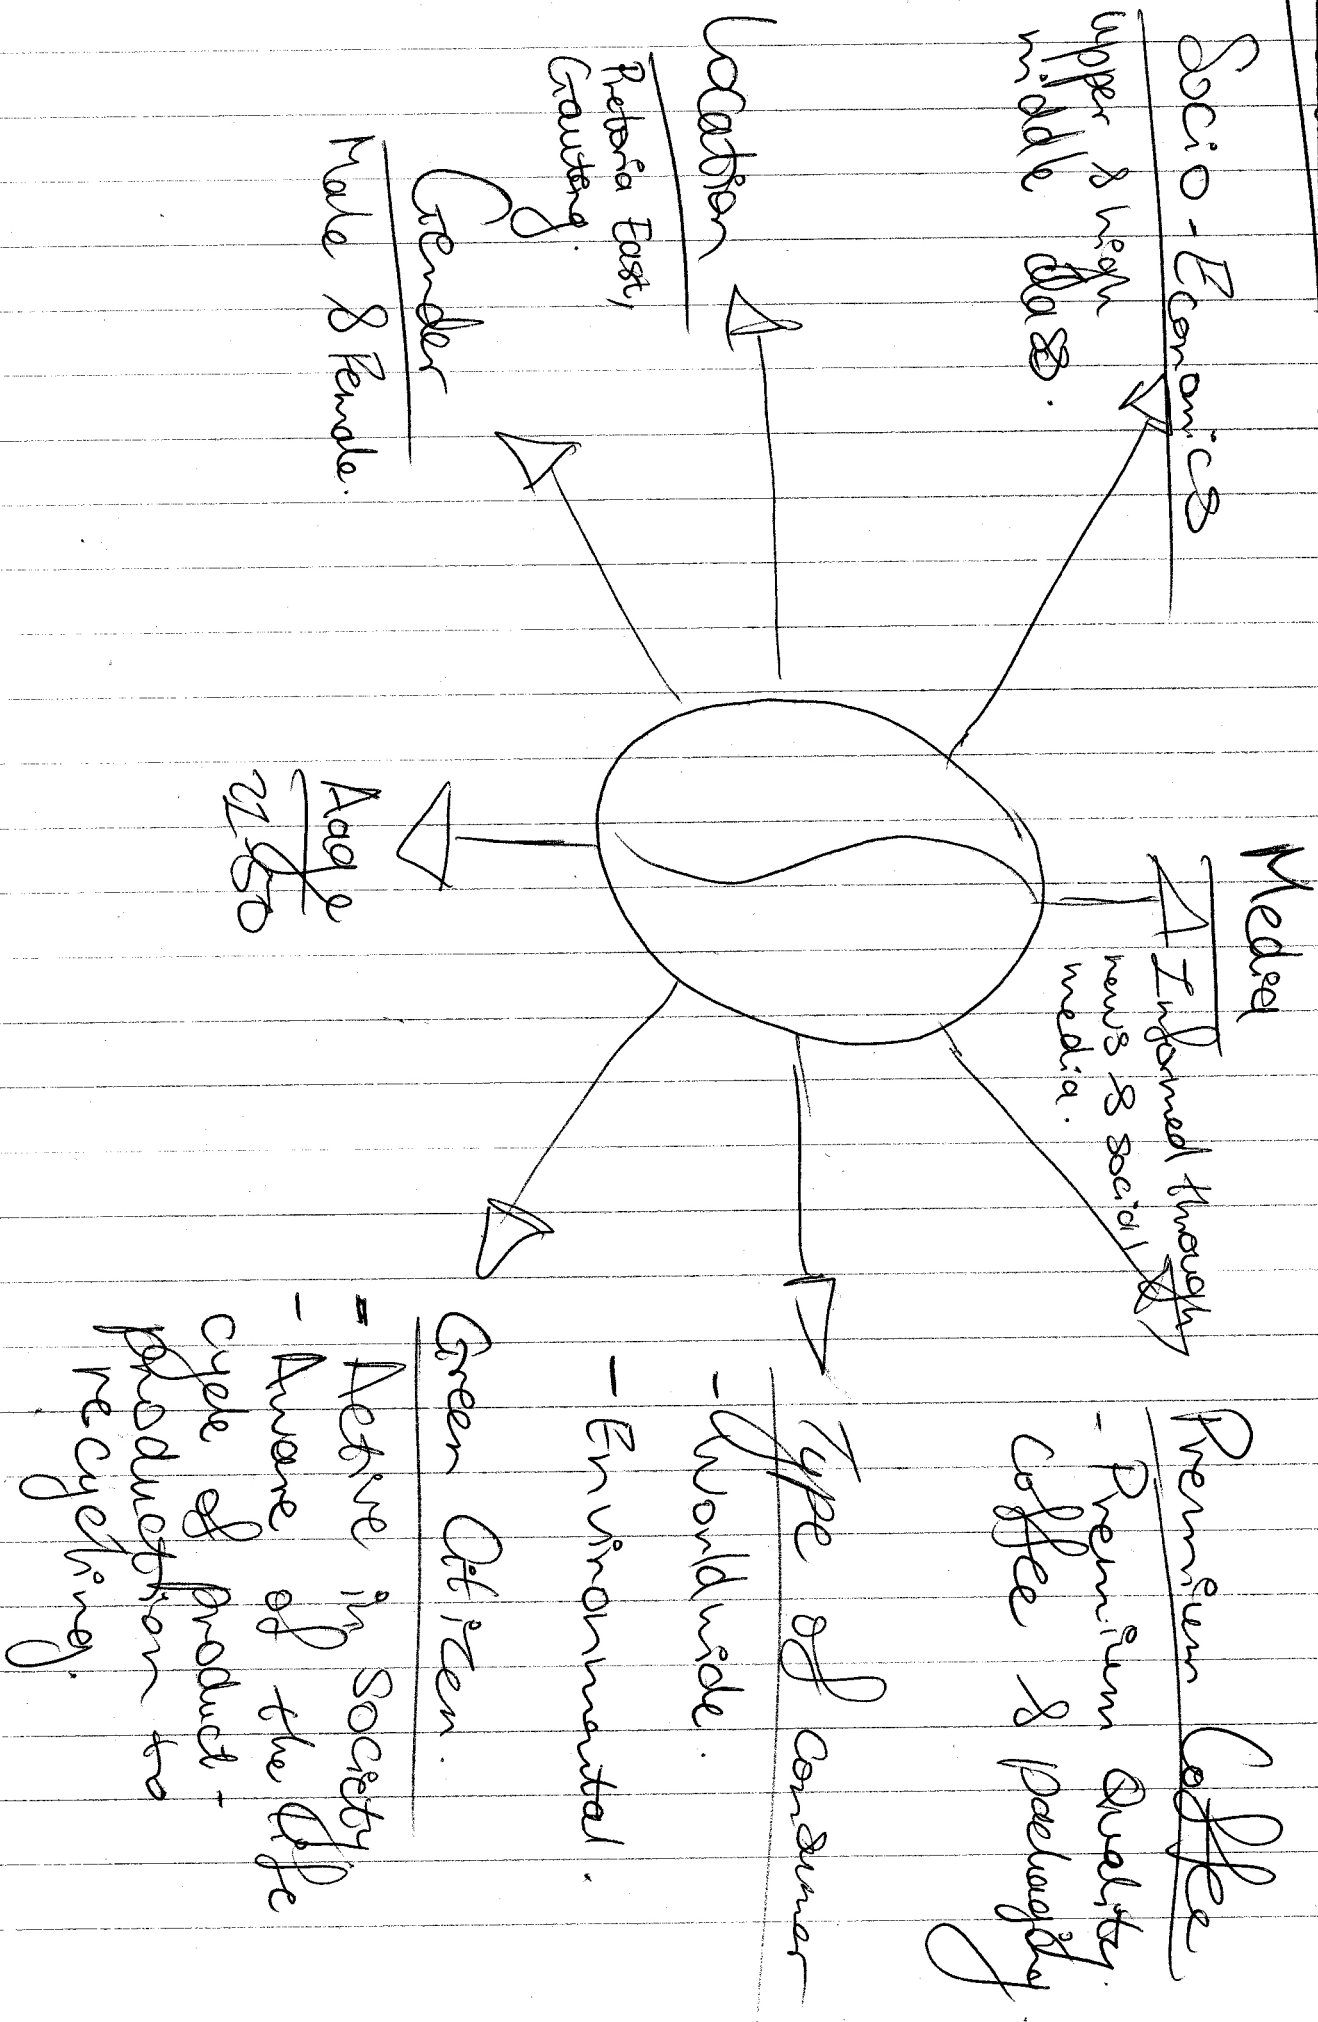 Socio-Economics
upper & high
middle class.
Location
Pretoria East,
Gauteng.
Gender
Male & Female.
Media
Informed through
news & social
media.
Aage
Premium Coffee
- Premium Quality.
Coffee & packaging.
Type of consumer
- Worldwide.
- Environmental.
Green Citizen.
- Active in society
- Aware of the life
cycle of product -
production to
recycling.